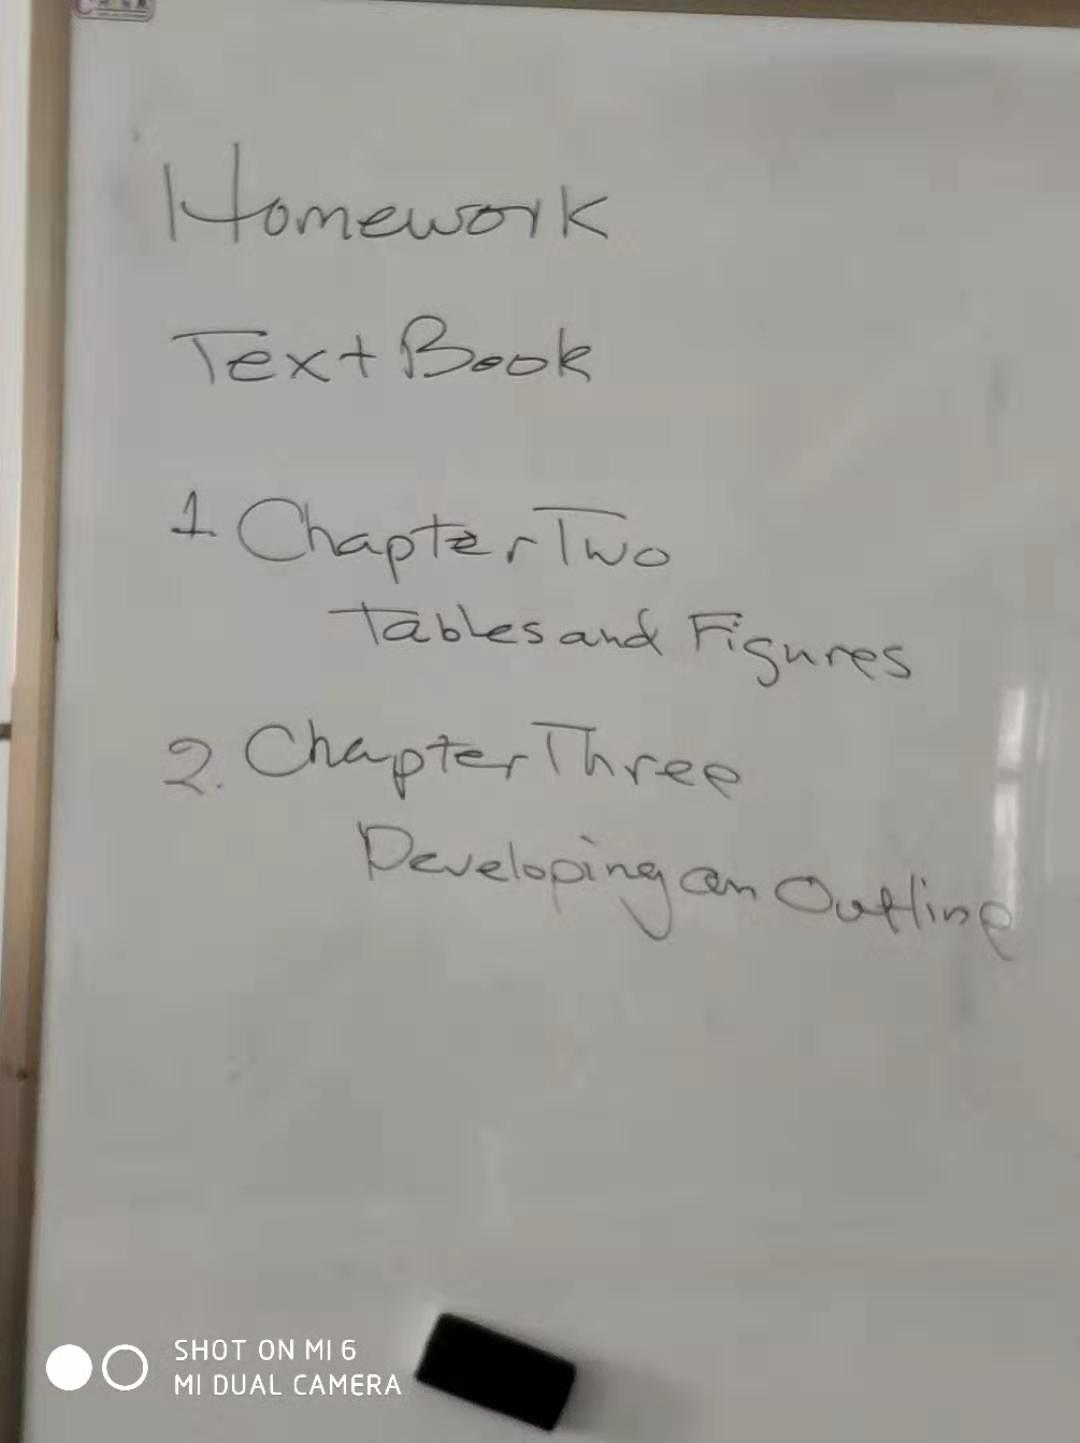 Homework
Text Book
1. Chapter Two
Tables and Figures
2. Chapter Three
Developing an Outline
SHOT ON MI 6
MI DUAL CAMERA